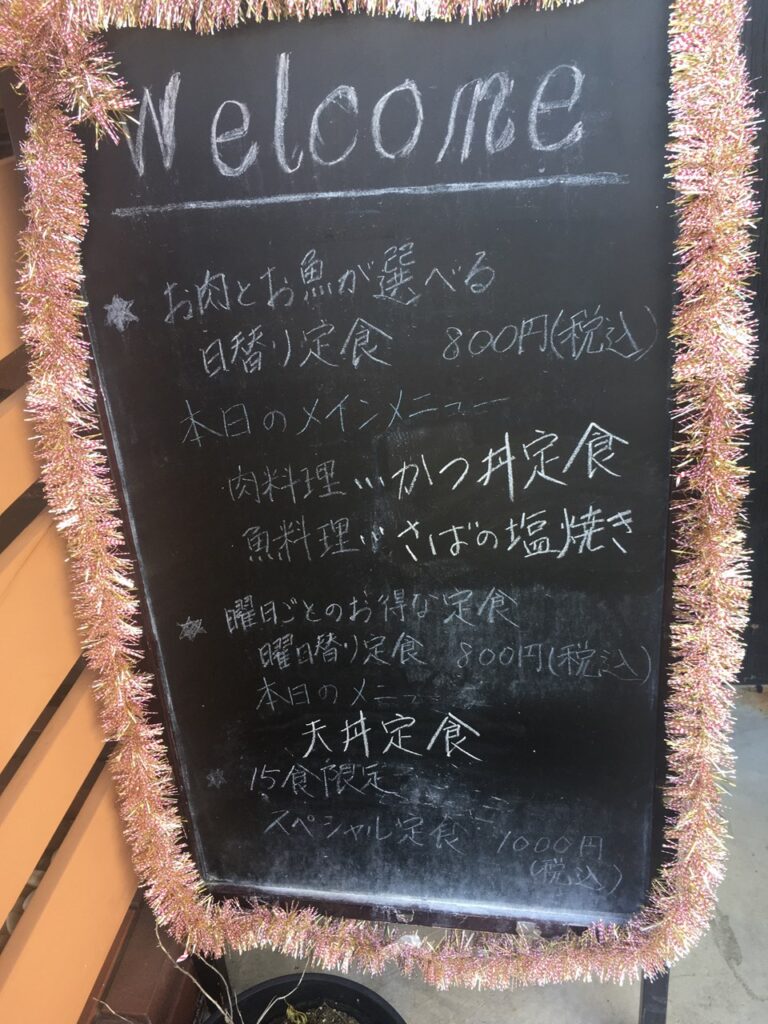 Welcome
お肉とお魚が選べる
日替り定食 800円(税込)
本日のメインメニュー
肉料理…かつ丼定食
魚料理…さばの塩焼き
曜日ごとのお得な定食
曜日替り定食 800円(税込)
本日のメニュー
天丼定食
15食限定
スペシャル定食 1000円
(税込)